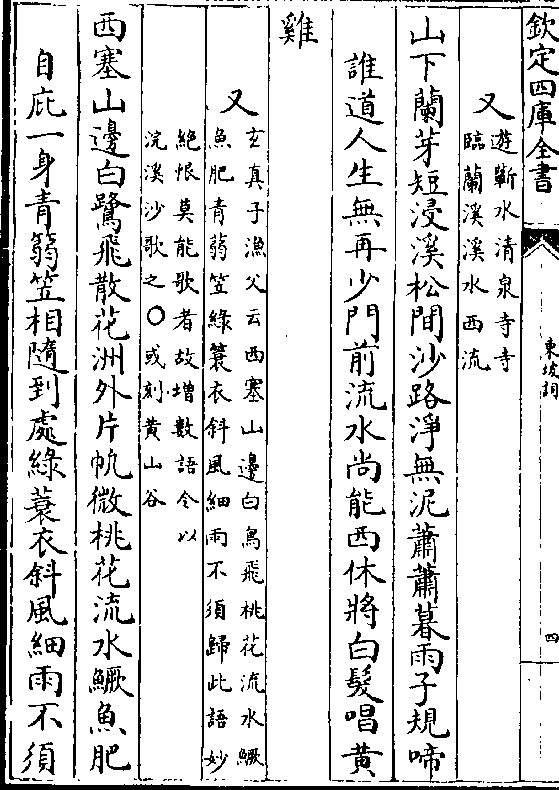 欽定四庫全書
東坡詞
四
又遊蘄水清泉寺寺
臨蘭溪溪水西流
山下蘭芽短浸溪松間沙路淨無泥蕭蕭暮雨子規啼
誰道人生無再少門前流水尚能西休將白髮唱黄
雞
又玄真子漁父云西塞山邊白鳥飛桃花流水鱖
魚肥青蒻笠綠簑衣斜風細雨不須歸此語妙
絶恨莫能歌者故増數語令以
浣溪沙歌之〇或刻黄山谷
西塞山邊白鷺飛散花洲外片帆微桃花流水鱖魚肥
自庇一身青篛笠相隨到處綠蓑衣斜風細雨不須